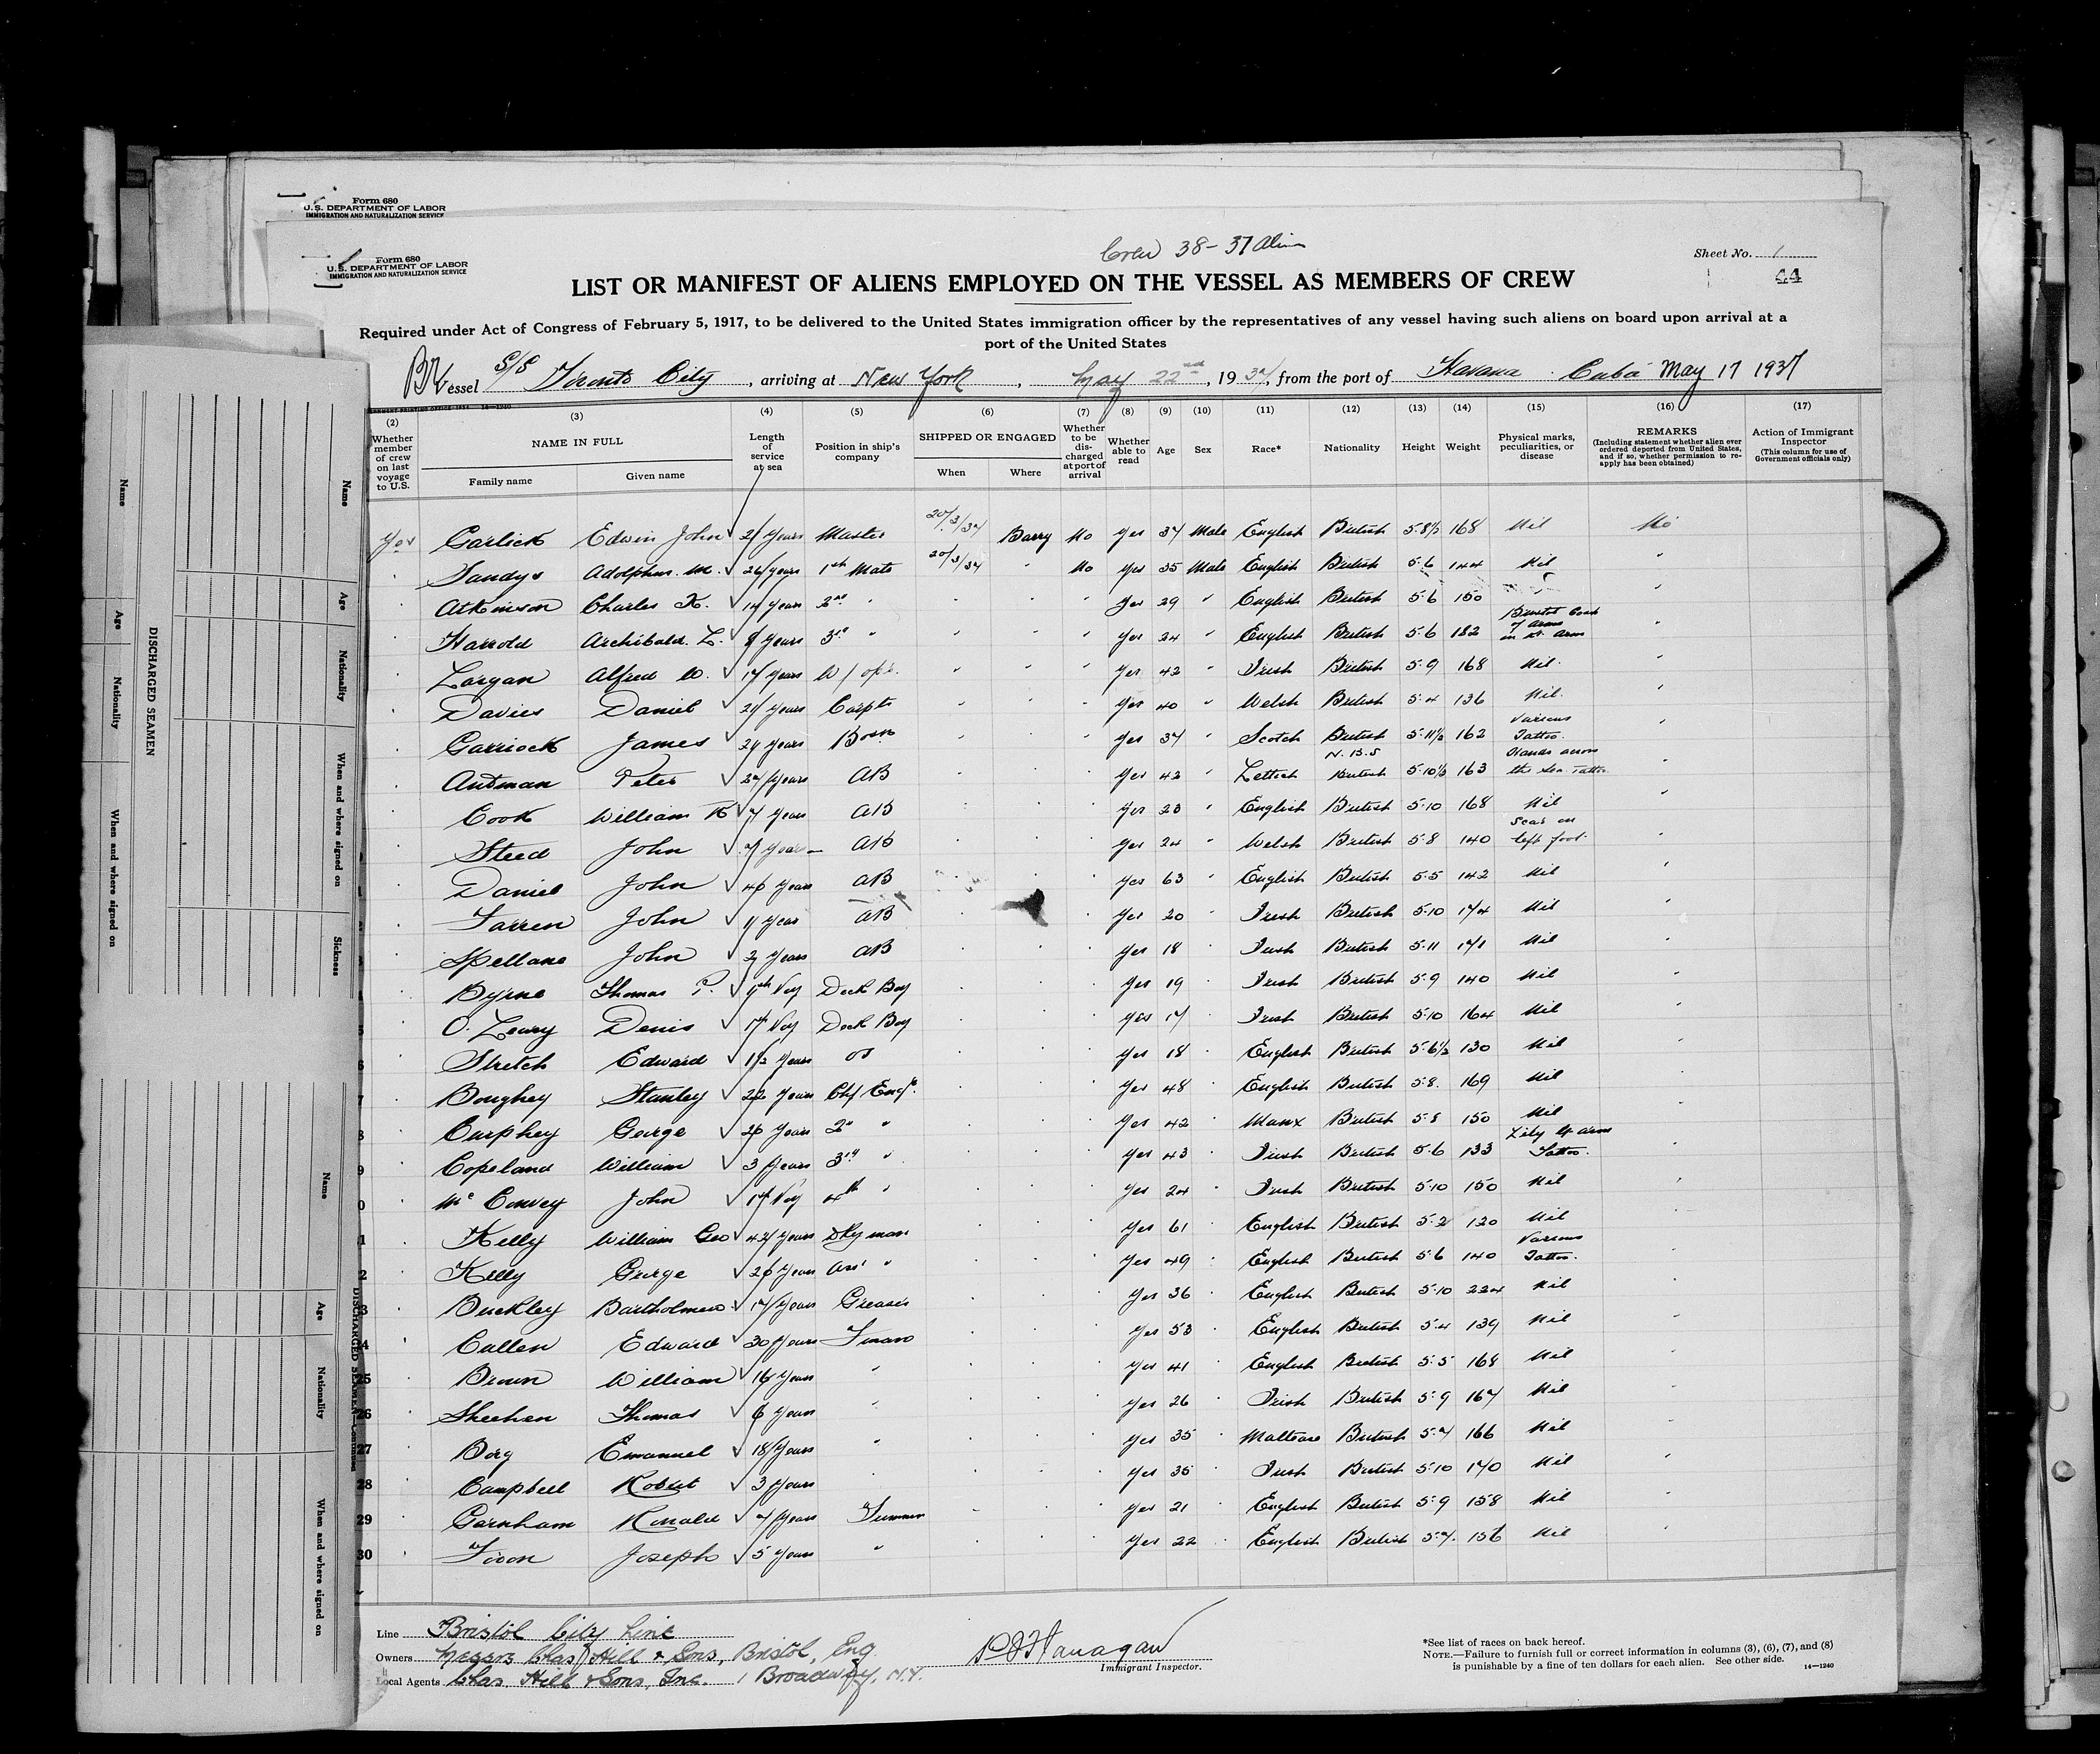 Form 680
U.S. DEPARTMENT OF LABOR
IMMIGRATION AND NATURALIZATION SERVICE
Form 680
U.S. DEPARTMENT OF LABOR
IMMIGRATION AND NATURALIZATION SERVICE
Crew 38 - 37 Alien
Sheet No. 1
44
LIST OR MANIFEST OF ALIENS EMPLOYED ON THE VESSEL AS MEMBERS OF CREW
Required under Act of Congress of February 5, 1917, to be delivered to the United States immigration officer by the representatives of any vessel having such aliens on board upon arrival at a
port of the United States
Br Vessel S/S Toronto City, arriving at New York, May 22nd, 1937, from the port of Havana Cuba May 17 1937
(2) (3) (4) (5) (6) (7) (8) (9) (10) (11) (12) (13) (14) (15) (16) (17)
Whether member of crew on last voyage to U.S.
NAME IN FULL
Family name
Given name
Length of service at sea
Position in ship's company
SHIPPED OR ENGAGED
When
Where
Whether to be discharged at port of arrival
Whether able to read
Age
Sex
Race*
Nationality
Height
Weight
Physical marks, peculiarities, or disease
REMARKS
(Including statement whether alien ever ordered deported from United States, and if so, whether permission to reapply has been obtained)
Action of Immigrant Inspector
(This column for use of Government officials only)
Yes Garlick Edwin John 21 years Master 20/3/37 Barry No Yes 37 Male English British 5-8½ 168 Nil No
" Sandys Adolphus M. 26 years 1st Mate 20/3/37 " No Yes 35 Male English British 5-6 144 Nil "
" Atkinson Charles K. 14 years 2nd " " " " Yes 29 " English British 5-6 150 "
" Harrold Archibald L. 8 years 3rd " " " " Yes 24 " English British 5-6 182 Bristol Coat of Arms on rt. arm "
" Largan Alfred W. 17 years W/opr. " " " Yes 42 " Irish British 5-9 168 Nil "
" Davies Daniel 21 years Carptr " " " Yes 40 " Welsh British 5-4 136 Nil "
" Garriock James 21 years Bosn " " " Yes 37 " Scotch British 5-11½ 162 Various Tattoo "
" Audman Peter 27 years AB " " " Yes 42 " Lettish N.B.S British 5-10½ 163 Hands across the Sea Tattoo
" Cook William R 7 years AB " " " Yes 23 " English British 5-10 168 Nil "
" Steed John 7 years AB " " " Yes 24 " Welsh British 5-8 140 Scar on left foot "
" Daniel John 40 years AB " " " Yes 63 " English British 5-5 142 Nil "
" Farren John 1 year AB " " " Yes 20 " Irish British 5-10 174 Nil "
" Spellane John 2 years AB " " " Yes 18 " Irish British 5-11 171 Nil "
" Byrne Thomas P. Voy Deck Boy " " " Yes 19 " Irish British 5-9 140 Nil "
" O'Leary Denis 1st Voy Deck Boy " " " Yes 17 " Irish British 5-10 164 Nil "
" Stretch Edward 1½ years OS " " " Yes 18 " English British 5-6½ 130 Nil "
" Boughey Stanley 22 years Chf Engr. " " " Yes 48 " English British 5-8 169 Nil "
" Curphey George 20 years 2nd " " " " Yes 42 " Manx British 5-8 150 Nil "
" Copeland William 3 years 3rd " " " " Yes 43 " Irish British 5-6 133 Lily lft arm Tattoo "
" McConvey John 1st Voy 4th " " " " Yes 24 " Irish British 5-10 150 Nil "
" Kelly William Geo years Dkyman " " " Yes 61 " English British 5-2 120 Nil "
" Kelly George years Asst " " " " Yes 49 " English British 5-6 140 Various Tattoo "
" Buckley Bartholmew 17 years Greaser " " " Yes 36 " English British 5-10 224 Nil "
" Cullen Edward 30 years Fireman " " " Yes 53 " English British 5-4 139 Nil "
25 " Brown William 16 years " " " " Yes 41 " English British 5-5 168 Nil "
26 " Sheehan Thomas 6 years " " " " Yes 26 " Irish British 5-9 167 Nil "
27 " Borg Emanuel 18 years " " " " Yes 35 " Maltese British 5-7 166 Nil "
28 " Campbell Robert 3 years " " " " Yes 35 " Irish British 5-10 170 Nil "
29 " Garnham Ronald 7 years Trimmer " " " Yes 21 " English British 5-9 158 Nil "
30 " Joseph 5 years " " " " Yes 22 " English British 5-7 156 Nil "
Line Bristol City Line
Owners Messrs Chas Hill & Sons, Bristol, Eng
Local Agents Chas. Hill & Sons, Inc. 1 Broadway, N.Y.
Flanagan
Immigrant Inspector.
*See list of races on back hereof.
NOTE.—Failure to furnish full or correct information in columns (3), (6), (7), and (8)
is punishable by a fine of ten dollars for each alien. See other side.
14—1240
DISCHARGED SEAMEN
Name
Age
Nationality
When and where signed on
Name
Age
Nationality
When and where signed on
Sickness
DISCHARGED SEAMEN—Continued
Name
Age
Nationality
When and where signed on